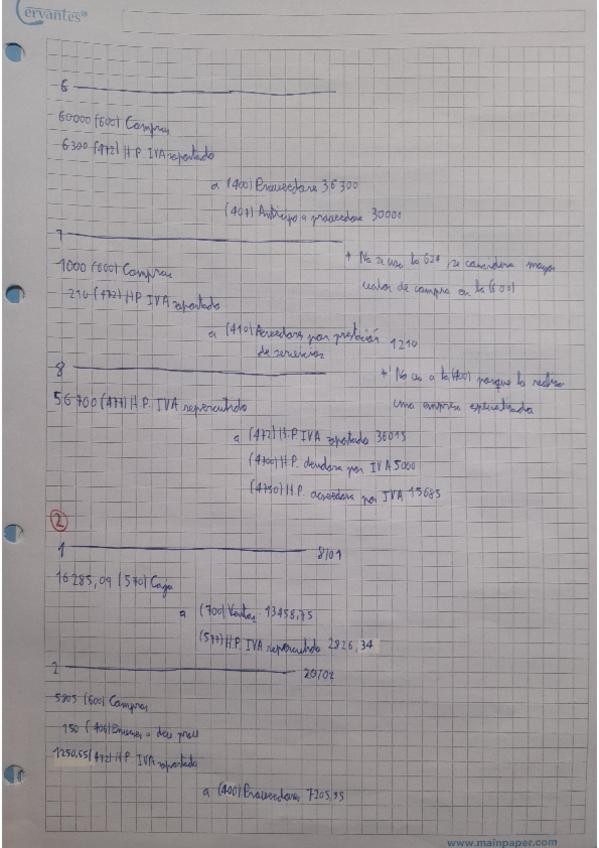 Cervantes®
6
60000 (600) Compras
6300 (472) H.P. IVA soportado
a (400) Proveedores 36300
(407) Anticipo a proveedores 30000
7
* No se usa la 624, se considera mayor
valor de compra en la (600)
1000 (600) Compras
210 (472) HP IVA soportado
a (410) Acreedores por prestación 1210
de servicios
8
* No es a la (400) porque lo realiza
una empresa especializada
56700 (477) H.P. IVA repercutido
a (472) H.P. IVA soportado 36015
(4700) H.P. deudora por IVA 5000
(4750) H.P. acreedora por IVA 15685
2
1 8/01
16285,09 (570) Caja
a (700) Ventas 13458,75
(577) H.P. IVA repercutido 2826,34
2 20/02
5805 (600) Compras
150 (406) Envases a dev prov
1250,55 (472) H.P. IVA soportado
a (400) Proveedores 7205,55
www.mainpaper.com